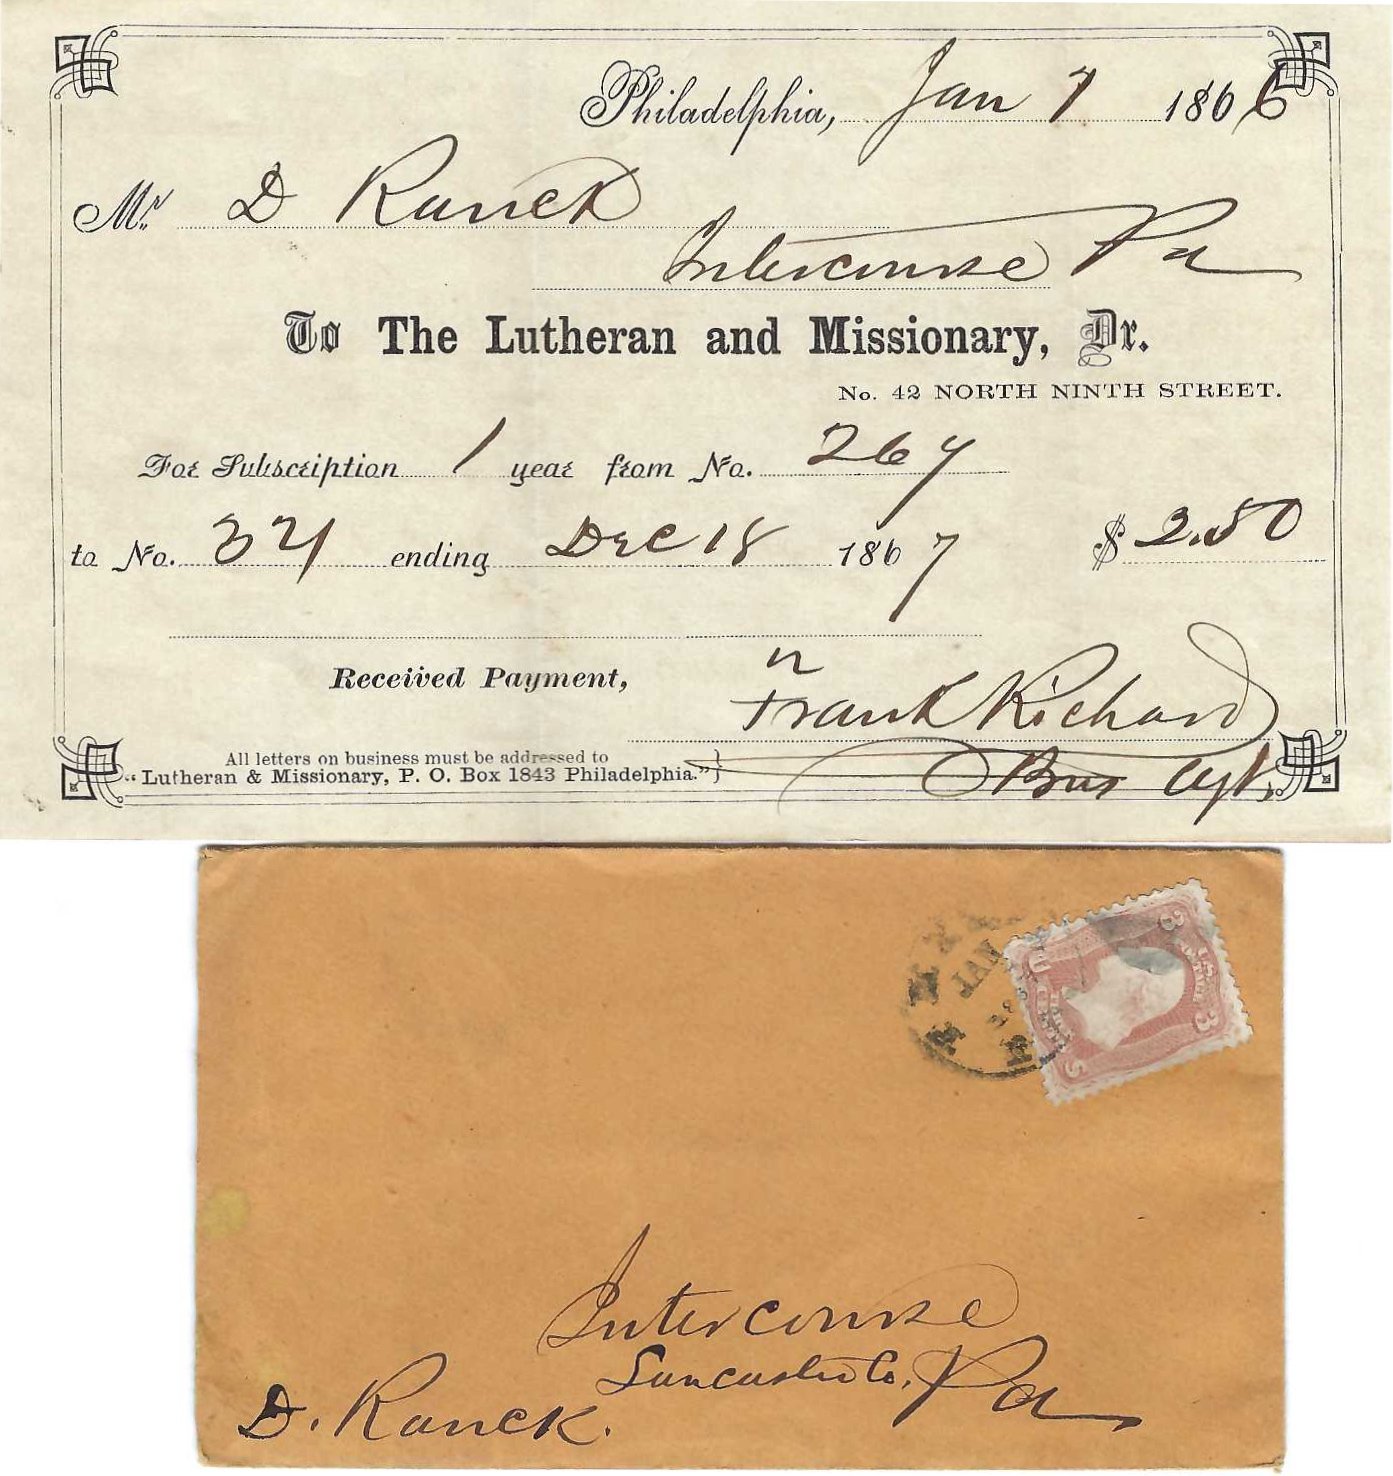 Philadelphia, Jan 7 1866
Mr. D Ranck
Intercourse Pa
To The Lutheran and Missionary, Dr.
No. 42 NORTH NINTH STREET.
For Subscription 1 year from No. 267
to No. 321 ending Dec 18 1867 $ 2.50
Received Payment,
Frank Richard
Bus Agt,
All letters on business must be addressed to
"Lutheran & Missionary, P. O. Box 1843 Philadelphia."}
JAN
3
U.S. POSTAGE
3
U S
Intercourse
Lancaster Co, Pa
D. Ranck.